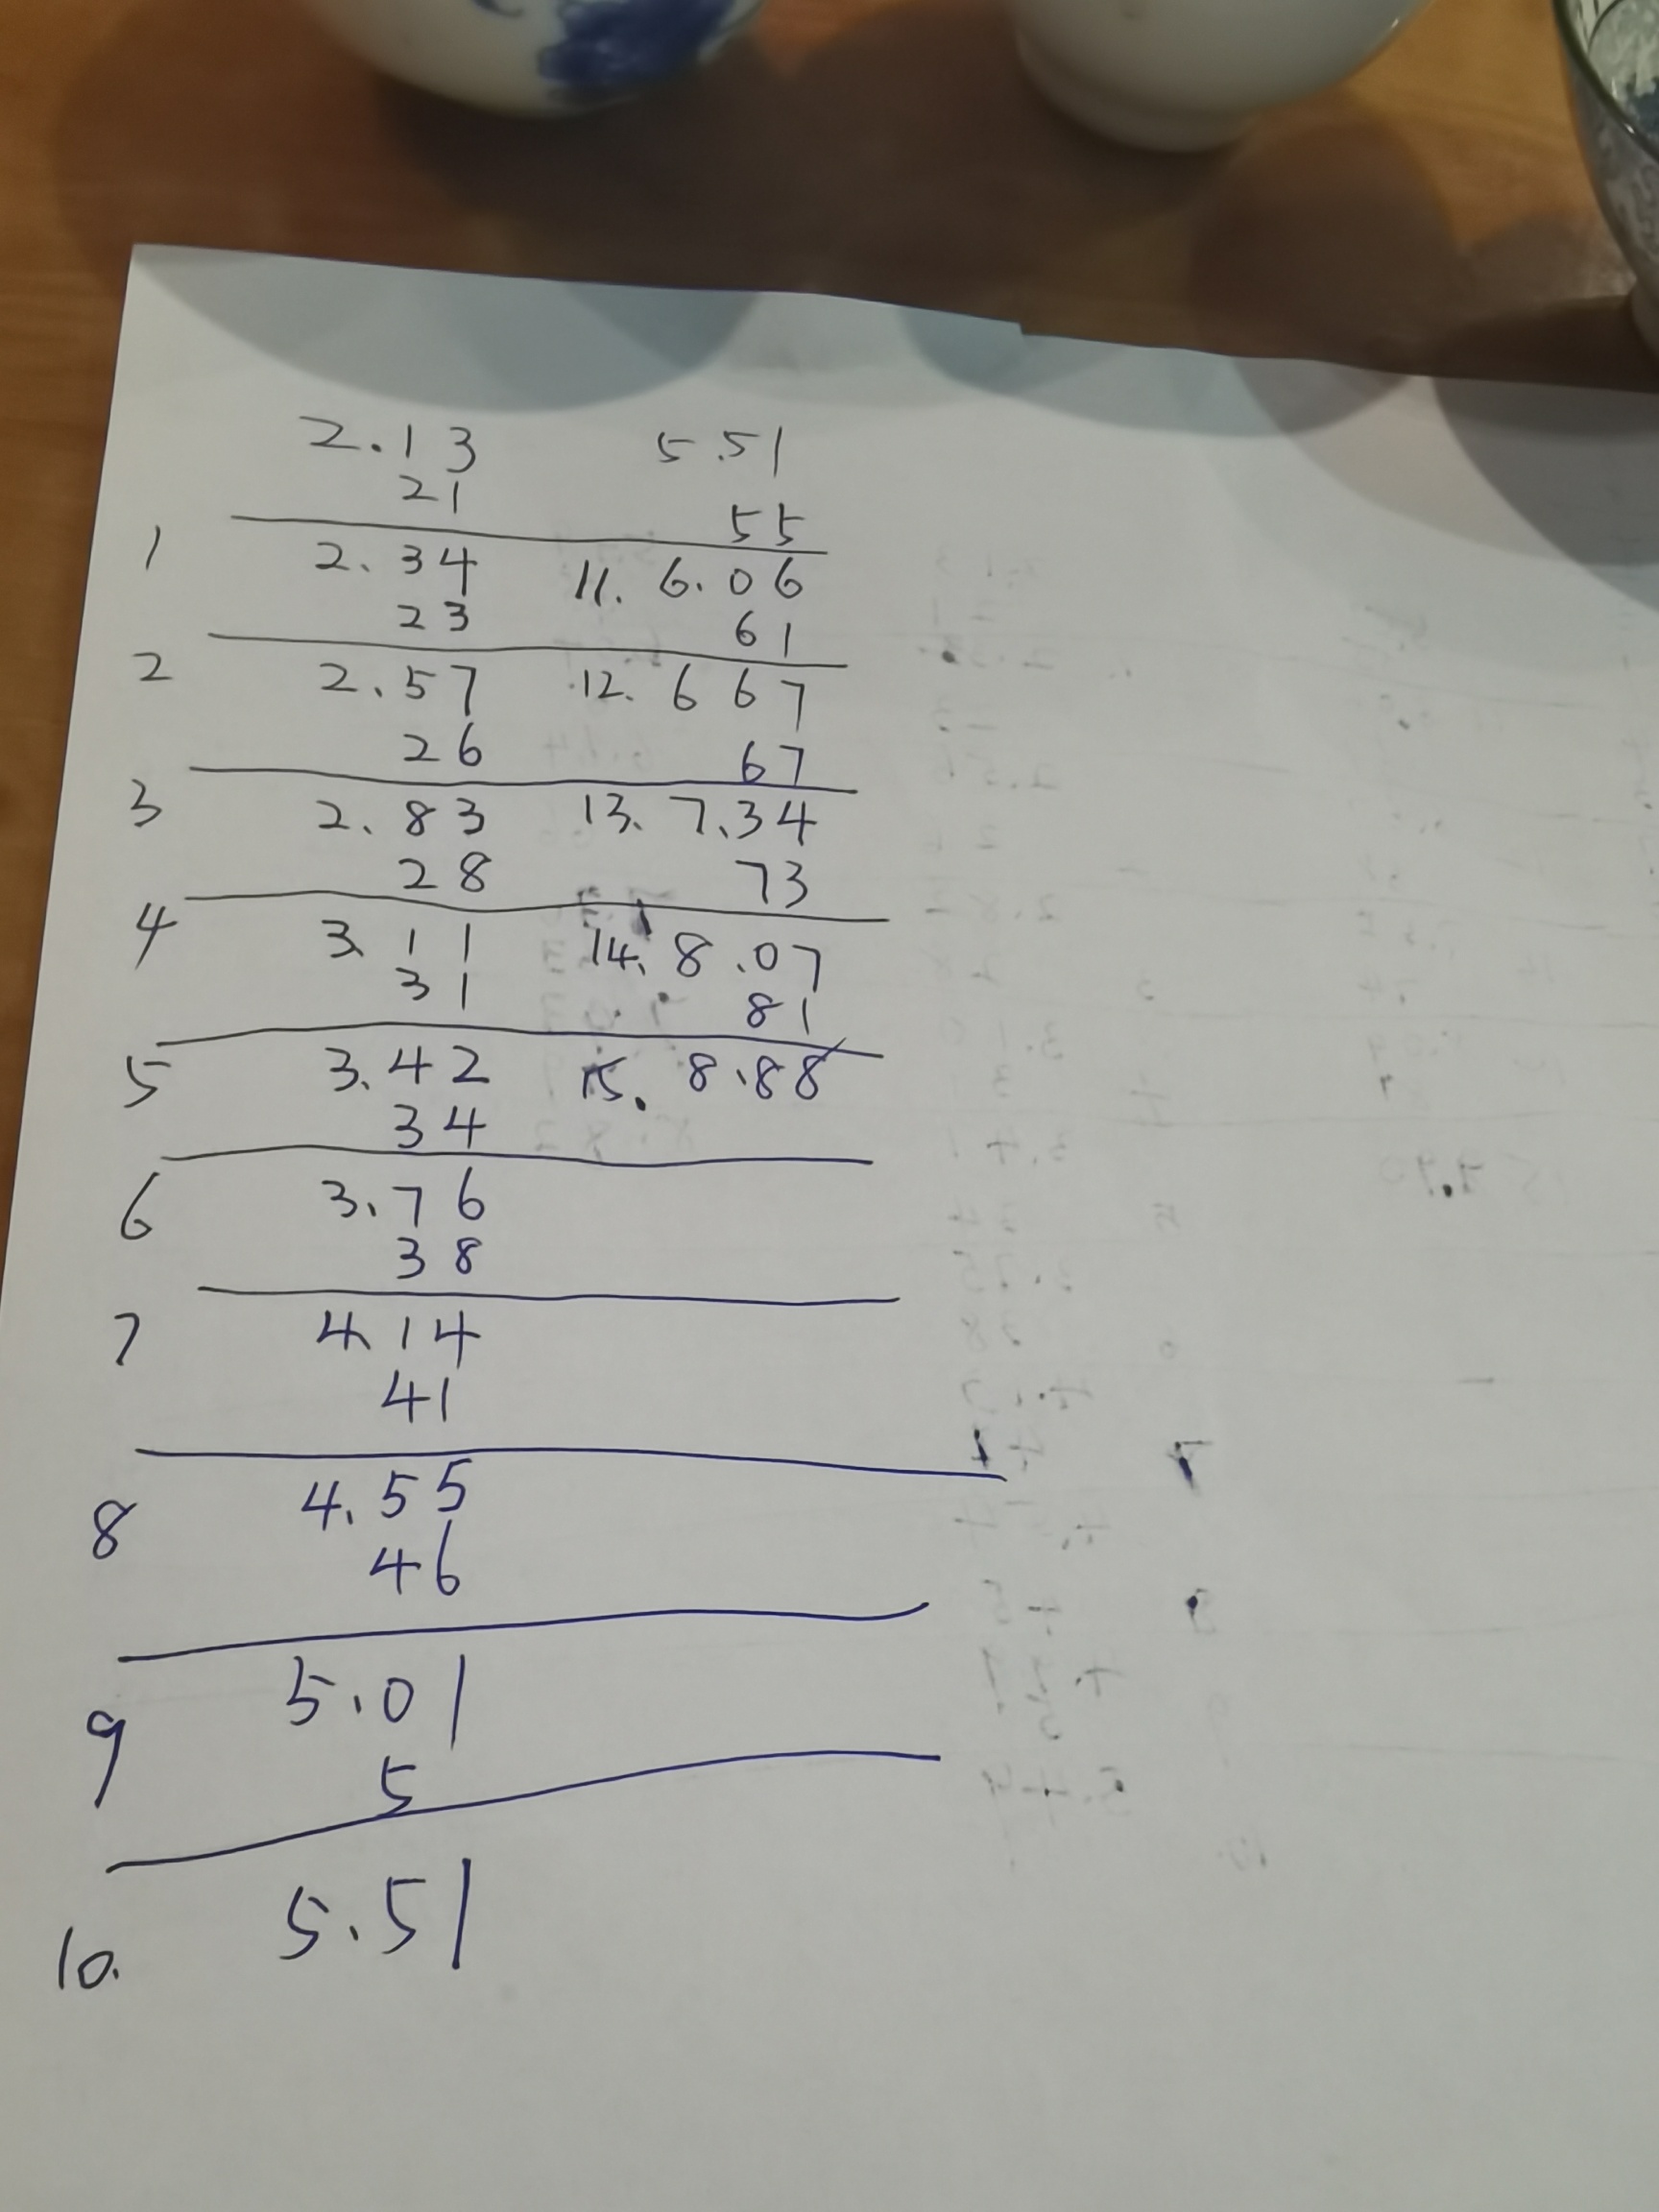 2.13
21
1 2.34
23
2 2.57
26
3 2.83
28
4 3.11
31
5 3.42
34
6 3.76
38
7 4.14
41
8 4.55
46
9 5.01
5
10. 5.51
5.51
55
11. 6.06
61
12. 6 6 7
67
13. 7.34
73
14. 8.07
81
15. 8.88